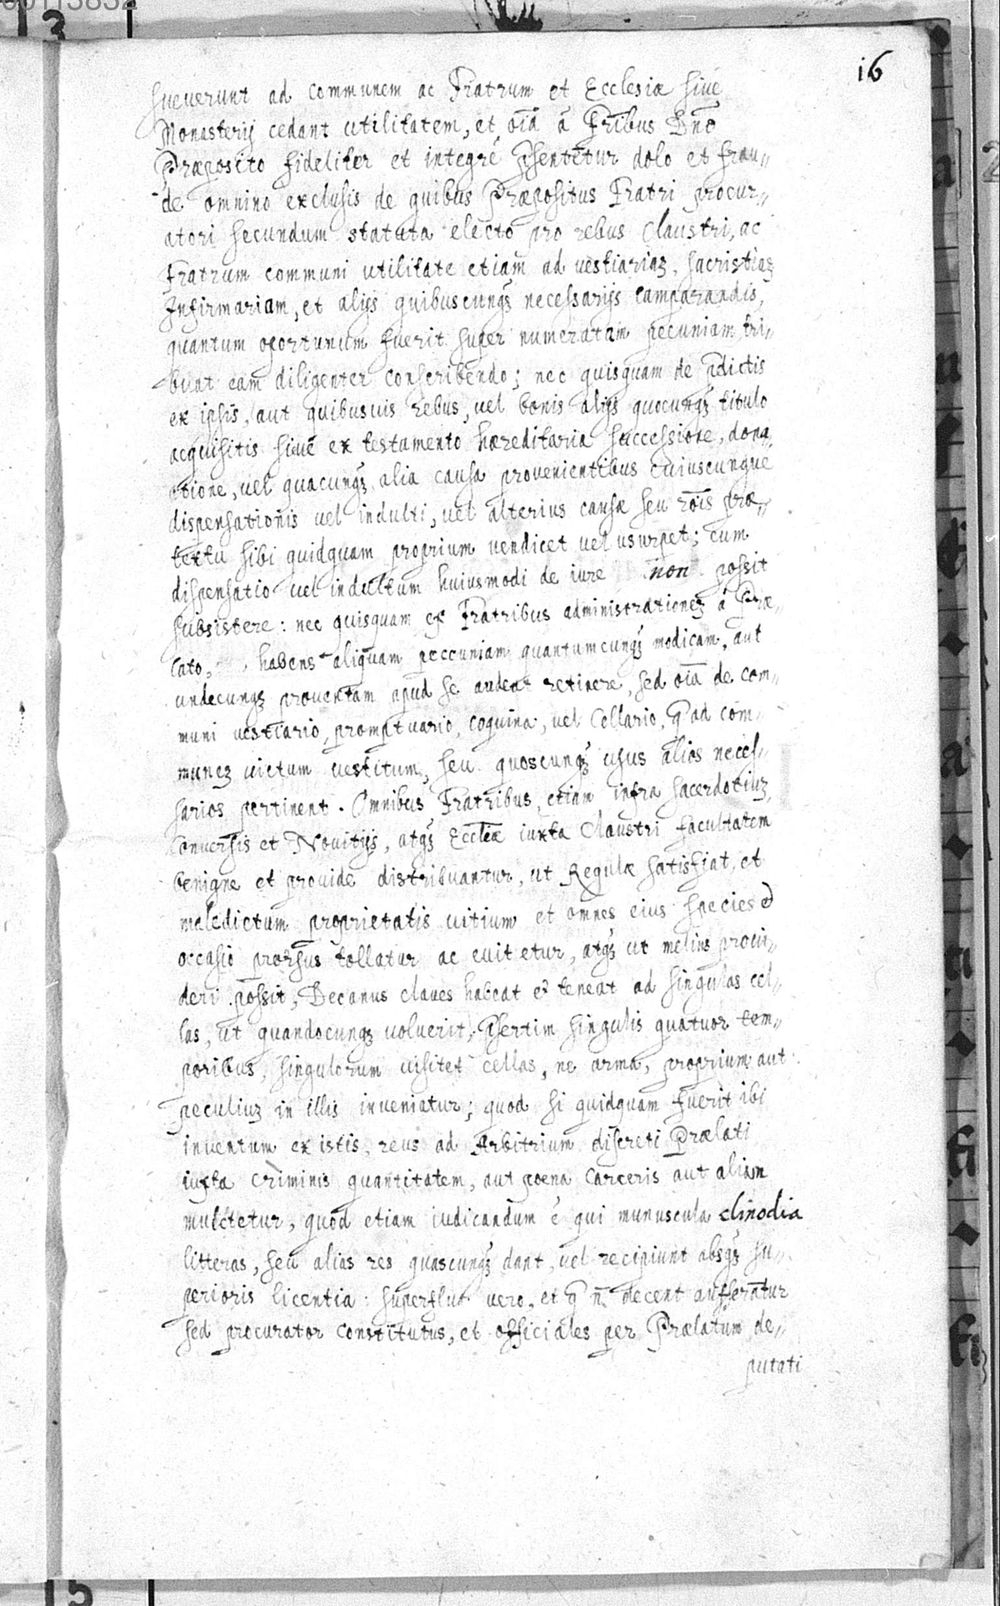 16
sueuerunt ad communem ac Fratrum et Ecclesiæ siue
Monasterij cedant utilitatem, et oīa à Fribus Dnō
Præposito fideliter et integrè pñsentetur dolo et frau„
de omnino exclusis de quibus Præpositus Fratri procur„
atori secundum statuta electo pro rebus Claustri, ac
Fratrum communi utilitate etiam ad uestiariaȝ, sacristiaȝ
Infirmariam, et alijs quibuscunqȝ necessarijs camparandis,
quantum oportunum fuerit super numeratam pecuniam tri„
bunt eam diligenter conscribendo; nec quisquam de pdictis
ex ipsis, aut quibusuis rebus, uel bonis alijs quocunqȝ titulo
acquisitis siue ex testamento hæreditaria successione, dona„
tione, uel quacunqȝ alia causa prouenientibus cuiuscunque
dispensationis uel indulti, uel alterius causæ seu rōis præ„
textu sibi quidquam proprium uendicet uel usurpet; cum
dispensatio uel indultum huiusmodi de iure non possit
subsistere: nec quisquam ex Fratribus administrationeȝ á Præ„
lato, habens aliquam peccuniam quantumcunqȝ modicam, aut
undecunqȝ prouentam apud se audeat retinere, sed oīa de com„
muni uestiario, promptuario, coquina, uel Cellario, q ad com„
muneȝ uictum uestitum, seu quoscunqȝ usus alios neces„
sarios pertinent. Omnibus Fratribus, etiam infra sacerdotiuȝ
Conuersis et Nouitijs, atqȝ Eccliæ iuxta Claustri facultatem
benigne et prouide distribuantur, ut Regulæ satisfiat, et
meledictum proprietatis uitium et omnes eius species &
occasio prorsus tollatur ac euitetur, atqȝ ut melius proui„
deri possit, Decanus claues habeat & teneat ad singulas cel„
las, ut quandocunqȝ uoluerit, psertim singulis quatuor tem„
poribus, singulorum uisitet cellas, ne arma, proprium aut
peculiuȝ in illis inueniatur; quod si quidquam fuerit ibi
inuentum ex istis, reus ad Arbitrium discreti Prælati
iuxta Criminis quantitatem, aut poena Carceris aut aliam
mulctetur, quod etiam iudicandum ē qui munuscula clinodia
litteras, seu alias res quascunqȝ dant, uel recipiunt absqȝ su„
perioris licentia: superflua uero, et q ñ decent aufferantur
sed procurator constitutus, et officiales per Prælatum de„
putati